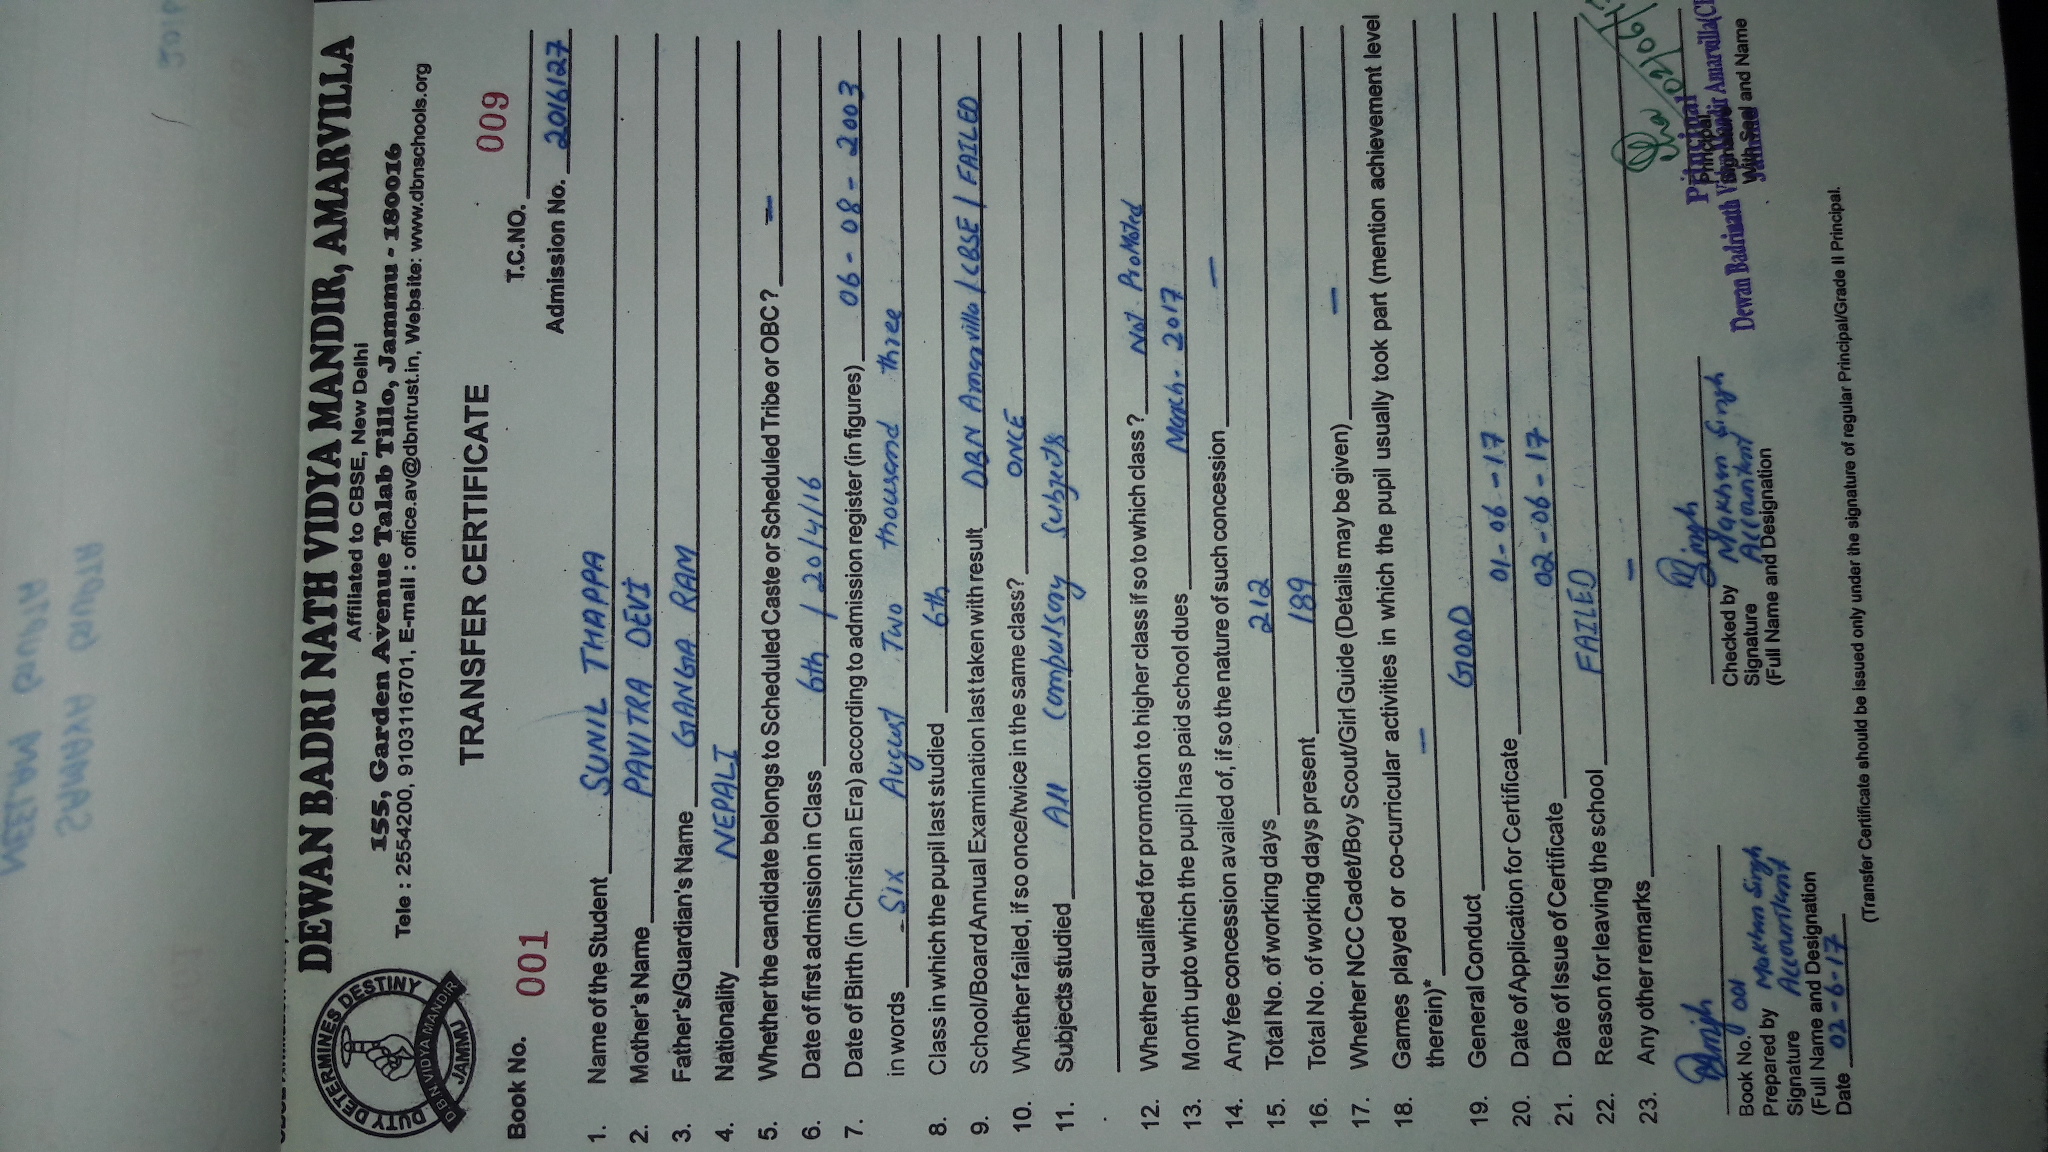 DEWAN BADRI NATH VIDYA MANDIR, AMARVILLA
Affiliated to CBSE, New Delhi
155, Garden Avenue Talab Tillo, Jammu - 180016
Tele : 2554200, 9103116701, E-mail : office.av@dbntrust.in, Website: www.dbnschools.org
PEITY DETERMINES DESTINY
DBN VIDYA MANDIR
JAMMU
TRANSFER CERTIFICATE
Book No. 001 T.C.NO. 009
Admission No. 2016127
1. Name of the Student SUNIL THAPPA
2. Mother's Name PAVITRA DEVI
3. Father's/Guardian's Name GANGA RAM
4. Nationality NEPALI
5. Whether the candidate belongs to Scheduled Caste or Scheduled Tribe or OBC? —
6. Date of first admission in Class 6th / 20/4/16
7. Date of Birth (in Christian Era) according to admission register (in figures) 06 - 08 - 2003
in words - Six August Two thousand three
8. Class in which the pupil last studied 6th
9. School/Board Annual Examination last taken with result DBN Amarvilla / CBSE / FAILED
10. Whether failed, if so once/twice in the same class? ONCE
11. Subjects studied All Compulsory Subjects
12. Whether qualified for promotion to higher class if so to which class? Not Promoted
13. Month upto which the pupil has paid school dues March - 2017
14. Any fee concession availed of, if so the nature of such concession —
15. Total No. of working days 212
16. Total No. of working days present 189
17. Whether NCC Cadet/Boy Scout/Girl Guide (Details may be given) —
18. Games played or co-curricular activities in which the pupil usually took part (mention achievement level
therein)* —
19. General Conduct GOOD
20. Date of Application for Certificate 01-06-17
21. Date of Issue of Certificate 02-06-17
22. Reason for leaving the school FAILED
23. Any other remarks —
Book No. 001
Prepared by Makhan Singh
Signature Accountant
(Full Name and Designation
Date 02-6-17
Checked by Makhan Singh
Signature Accountant
(Full Name and Designation
Principal
Dewan Badrinath Vidya Mandir Amarvilla
With Seal and Name
(Transfer Certificate should be issued only under the signature of regular Principal/Grade II Principal.